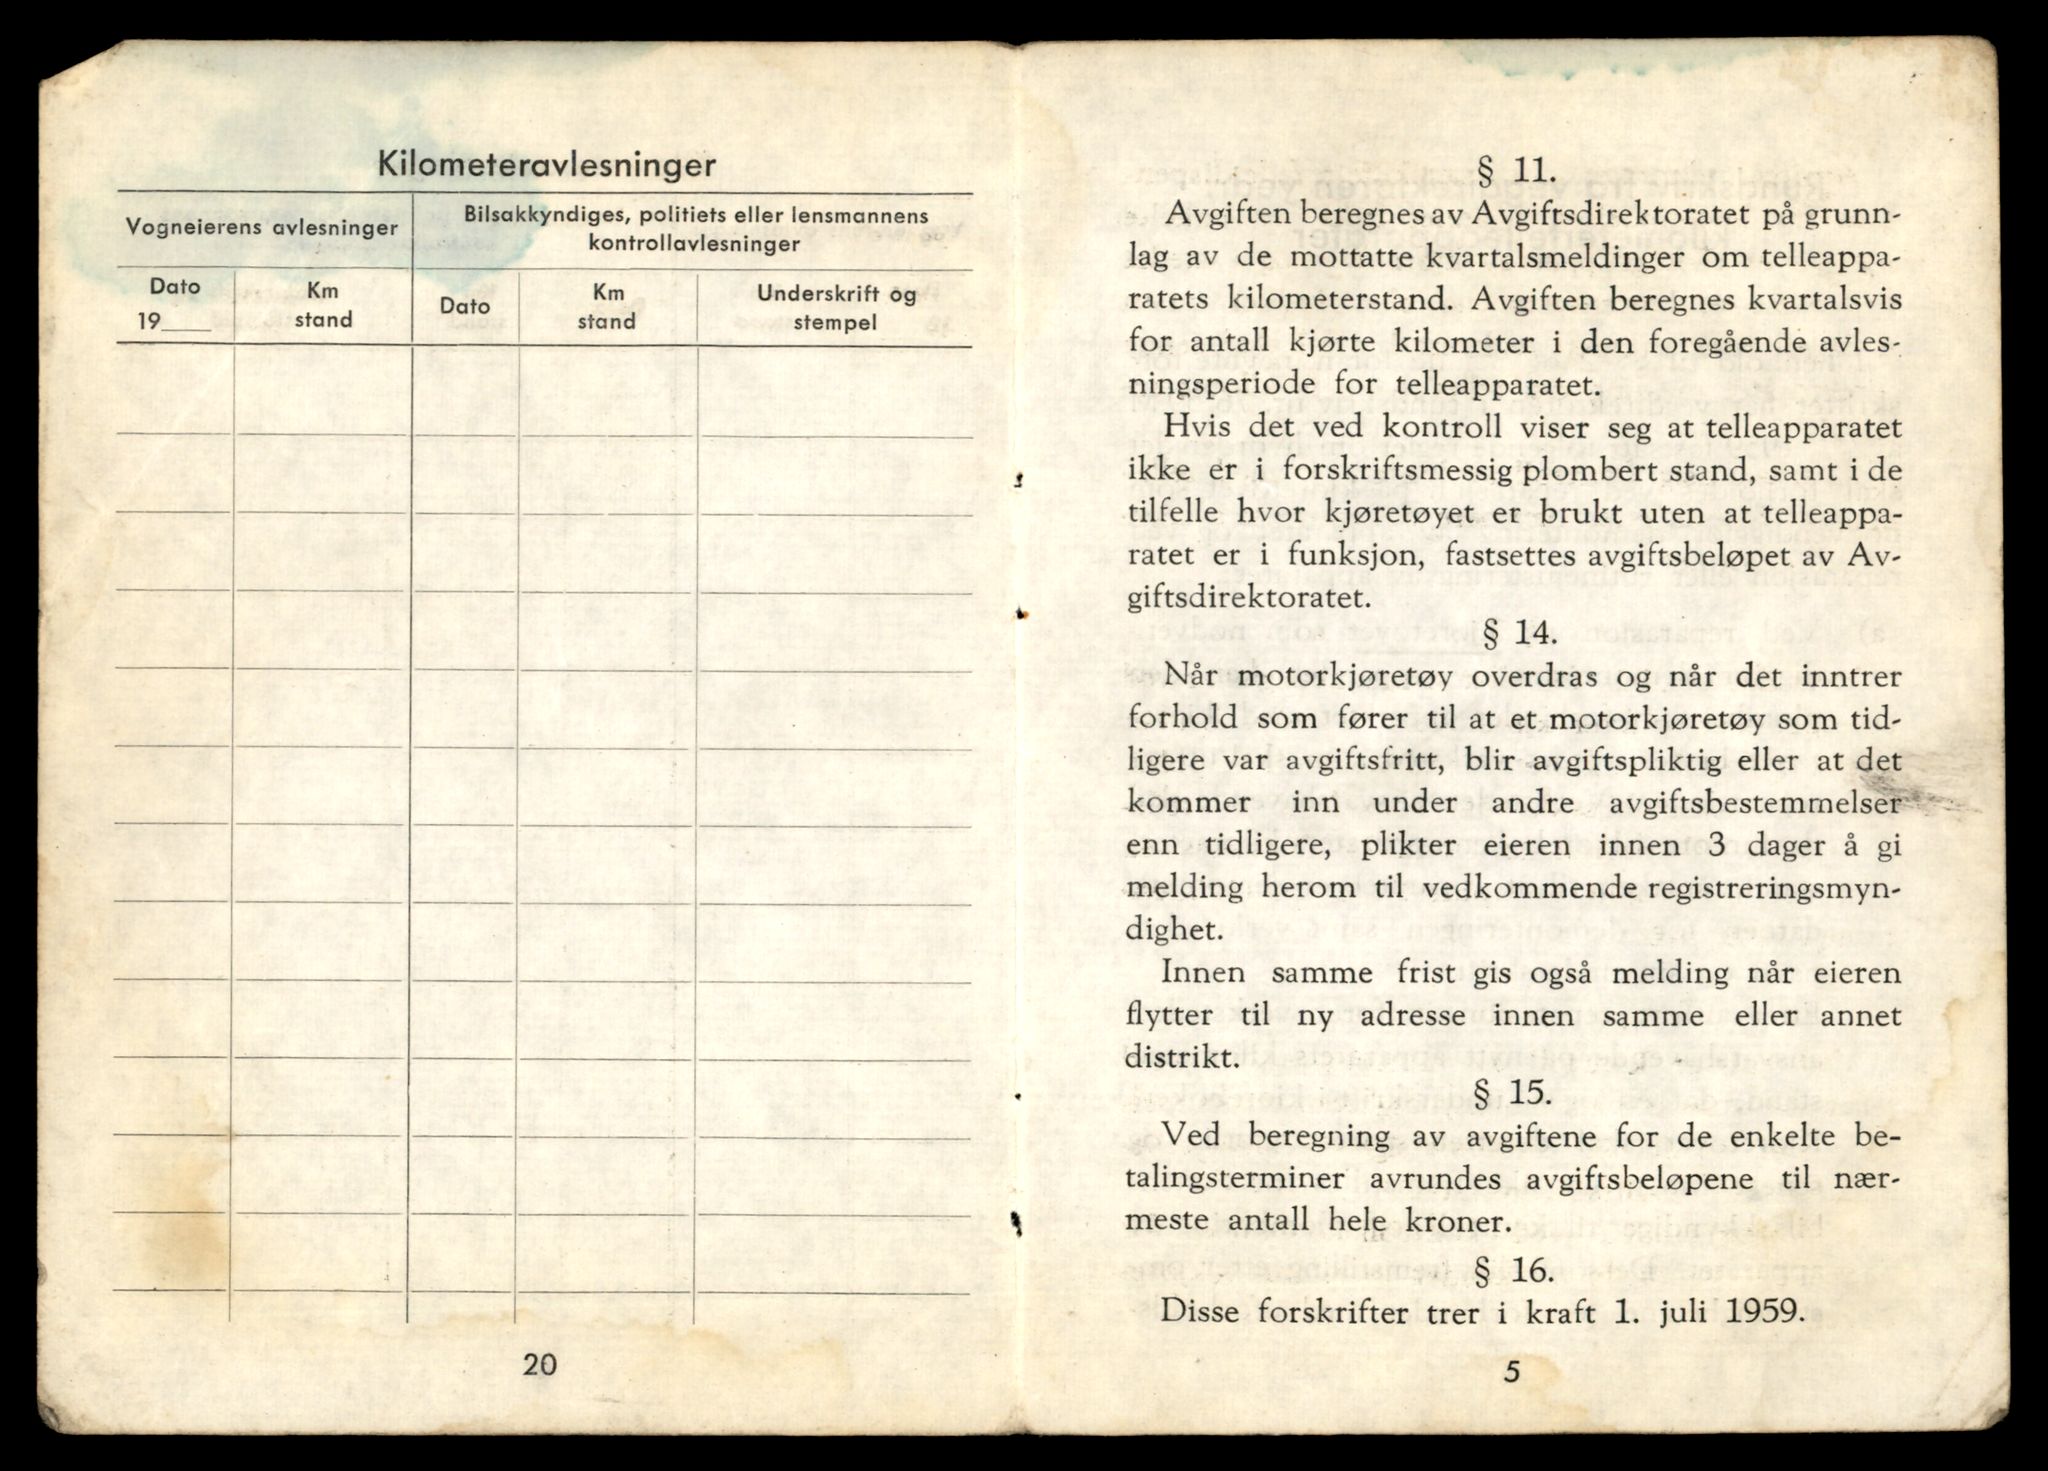 Kilometeravlesninger
Vogneierens avlesninger
Bilsakkyndiges, politiets eller lensmannens
kontrollavlesninger
Dato
19___
Km
stand
Dato
Km
stand
Underskrift og
stempel
20
§ 11.
Avgiften beregnes av Avgiftsdirektoratet på grunn-
lag av de mottatte kvartalsmeldinger om telleappa-
ratets kilometerstand. Avgiften beregnes kvartalsvis
for antall kjørte kilometer i den foregående avles-
ningsperiode for telleapparatet.
Hvis det ved kontroll viser seg at telleapparatet
ikke er i forskriftsmessig plombert stand, samt i de
tilfelle hvor kjøretøyet er brukt uten at telleappa-
ratet er i funksjon, fastsettes avgiftsbeløpet av Av-
giftsdirektoratet.
§ 14.
Når motorkjøretøy overdras og når det inntrer
forhold som fører til at et motorkjøretøy som tid-
ligere var avgiftsfritt, blir avgiftspliktig eller at det
kommer inn under andre avgiftsbestemmelser
enn tidligere, plikter eieren innen 3 dager å gi
melding herom til vedkommende registreringsmyn-
dighet.
Innen samme frist gis også melding når eieren
flytter til ny adresse innen samme eller annet
distrikt.
§ 15.
Ved beregning av avgiftene for de enkelte be-
talingsterminer avrundes avgiftsbeløpene til nær-
meste antall hele kroner.
§ 16.
Disse forskrifter trer i kraft 1. juli 1959.
5